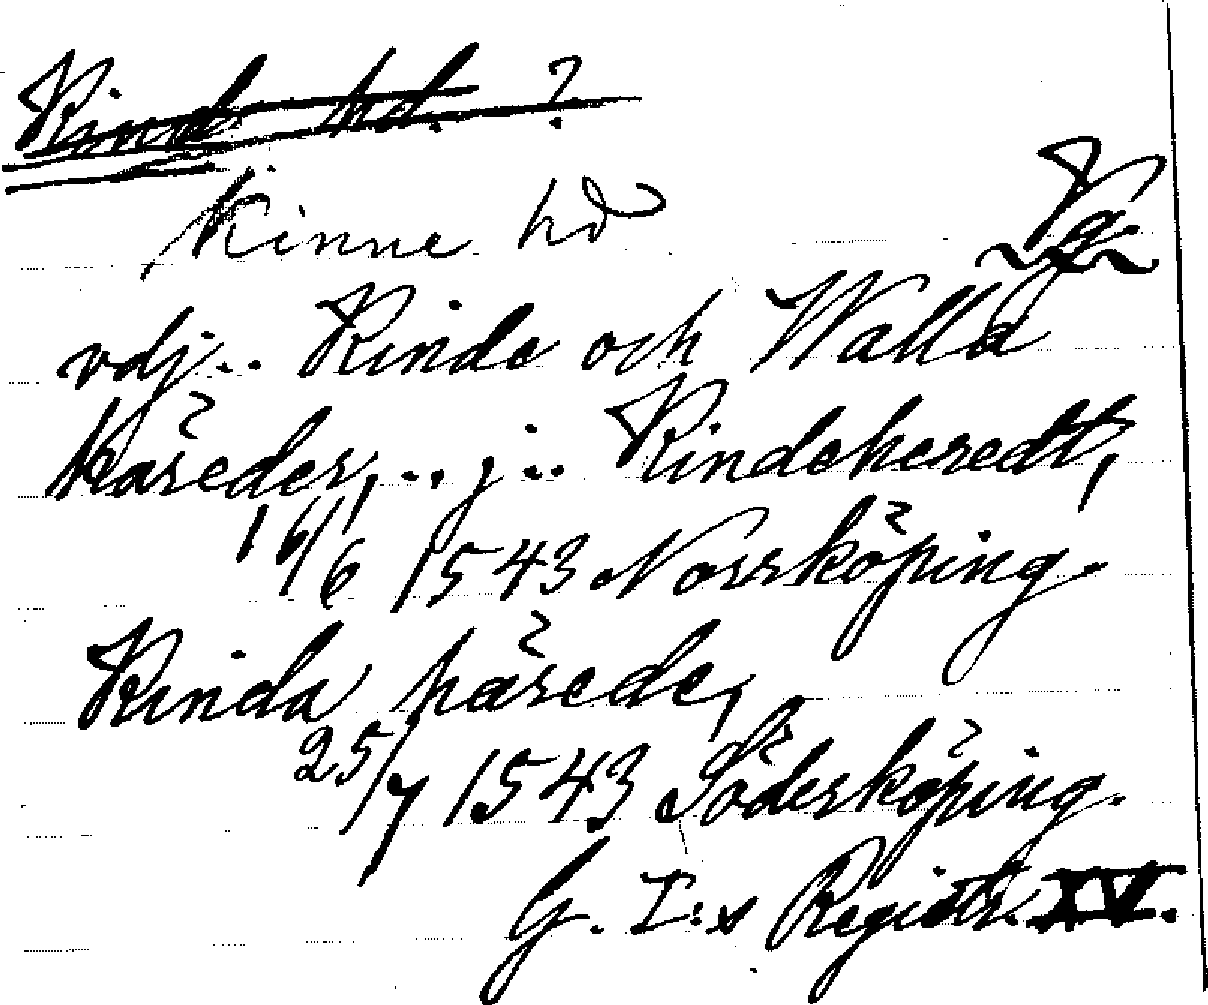 Kind hd. ?
Kinne hd
Vg.
vdj.. Kinde och Walla
Häreder, .. j .. Kindeheredt,
16/6 1543 Norrköping.
Kinda härede,
25/7 1543 Söderköping.
G. I:s Registr. XV.